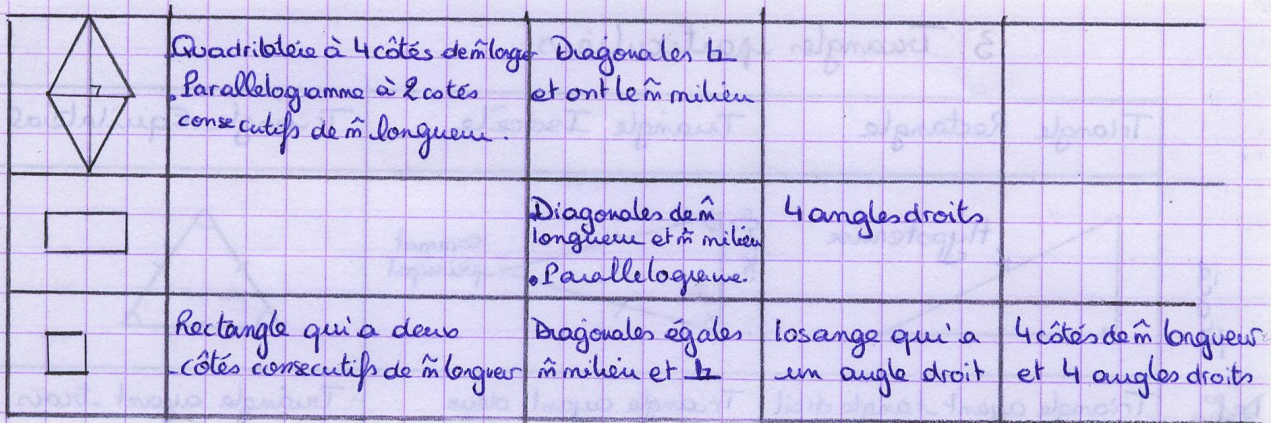 Quadrilatère à 4 côtés de m̂ long
. Parallelogramme à 2 cotés
consecutifs de m̂ longueur.
Diagonales ⊥
et ont le m̂ milieu
Diagonales de m̂
longueur et m̂ milieu
. Parallelograme.
4 angles droits
Rectangle qui a deux
côtés consecutifs de m̂ longueur
Diagonales égales
m̂ milieu et ⊥
losange qui a
un angle droit
4 côtés de m̂ longueur
et 4 angles droits